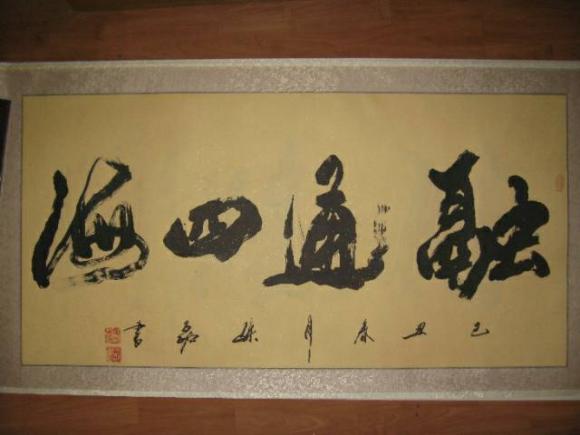 融通四海
己丑春月 磊書